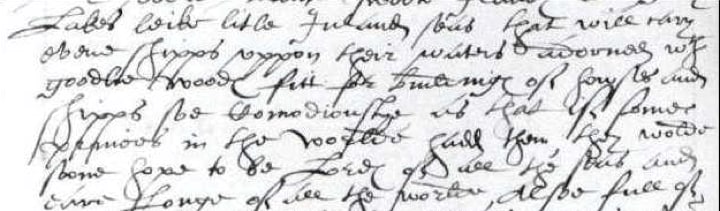 Lakes leike litle Inland seas that will cary
evene shipps uppon their waters adorned wth
goodlie woods fitt for buildinge of howses and
shipps soe comodiouslye as that if some
princes in the worlde hadd them, they wolde
soone hope to be Lords of all the seas and
eare longe of all the worlde, Alsoe full of